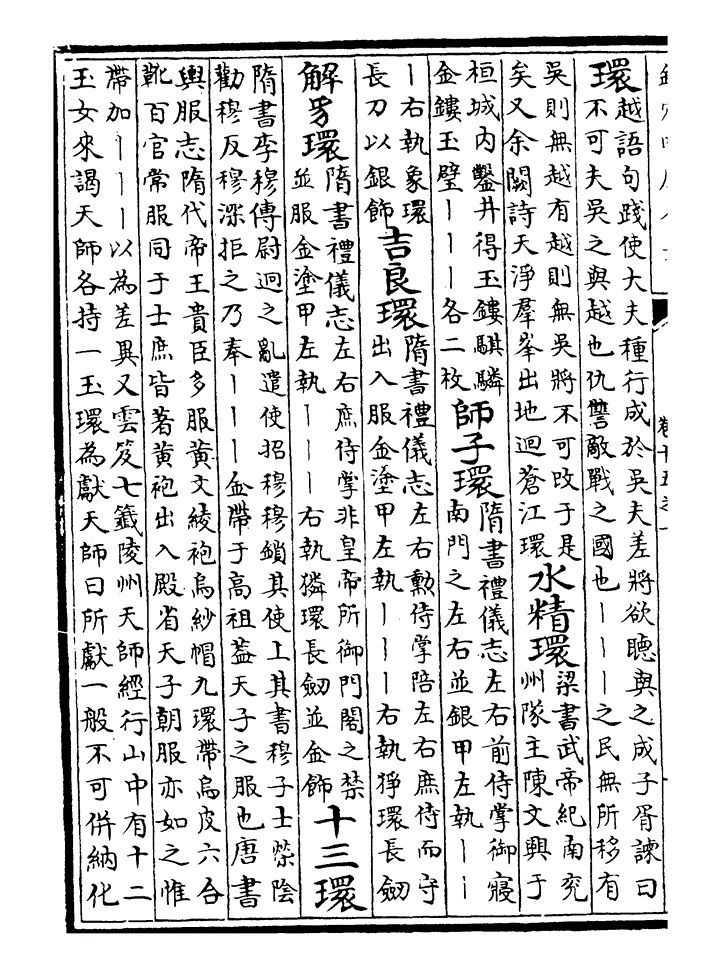 卷十五之一
環越語句踐使大夫種行成於吳夫差將欲聽與之成子胥諫曰
不可夫吳之與越也仇讐敵戰之國也丨丨丨之民無所移有
吳則無越有越則無吳將不可改于是
矣又余闕詩天淨羣峯出地迥蒼江環
水精環梁書武帝紀南兖
州隊主陳文興于
桓城内鑿井得玉鏤騏驎
金鏤玉璧丨丨丨各二枚
師子環隋書禮儀志左右前侍掌御寢
南門之左右並銀甲左執丨丨
丨右執象環
長刀以銀飾
吉良環隋書禮儀志左右勲侍掌陪左右庶侍而守
出入服金塗甲左執丨丨丨右執獰環長劒
解豸環隋書禮儀志左右庶侍掌非皇帝所御門閤之禁
並服金塗甲左執丨丨丨右執獜環長劒並金飾
十三環
隋書李穆傳尉迥之亂遣使招穆穆鎖其使上其書穆子士榮陰
勸穆反穆深拒之乃奉丨丨丨金帶于高祖葢天子之服也唐書
輿服志隋代帝王貴臣多服黄文綾袍烏紗帽九環帶烏皮六合
靴百官常服同于士庶皆著黄袍出入殿省天子朝服亦如之惟
帶加丨丨丨以為差異又雲笈七籖陵州天師經行山中有十二
玉女來謁天師各持一玉環為獻天師曰所獻一般不可併納化